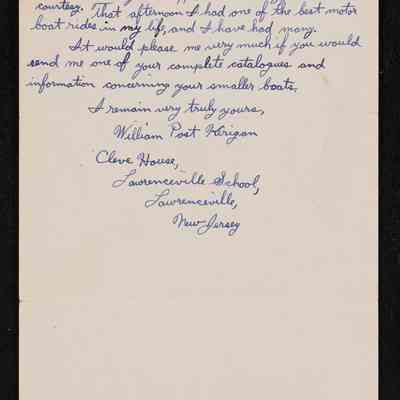 courtesy. That afternoon I had one of the best motor
boat rides in my life, and I have had many.
It would please me very much if you would
send me one of your complete catalogues and
information concerning your smaller boats.
I remain very truly yours,
William Post Kerigan
Cleve House,
Lawrenceville School,
Lawrenceville,
New Jersey